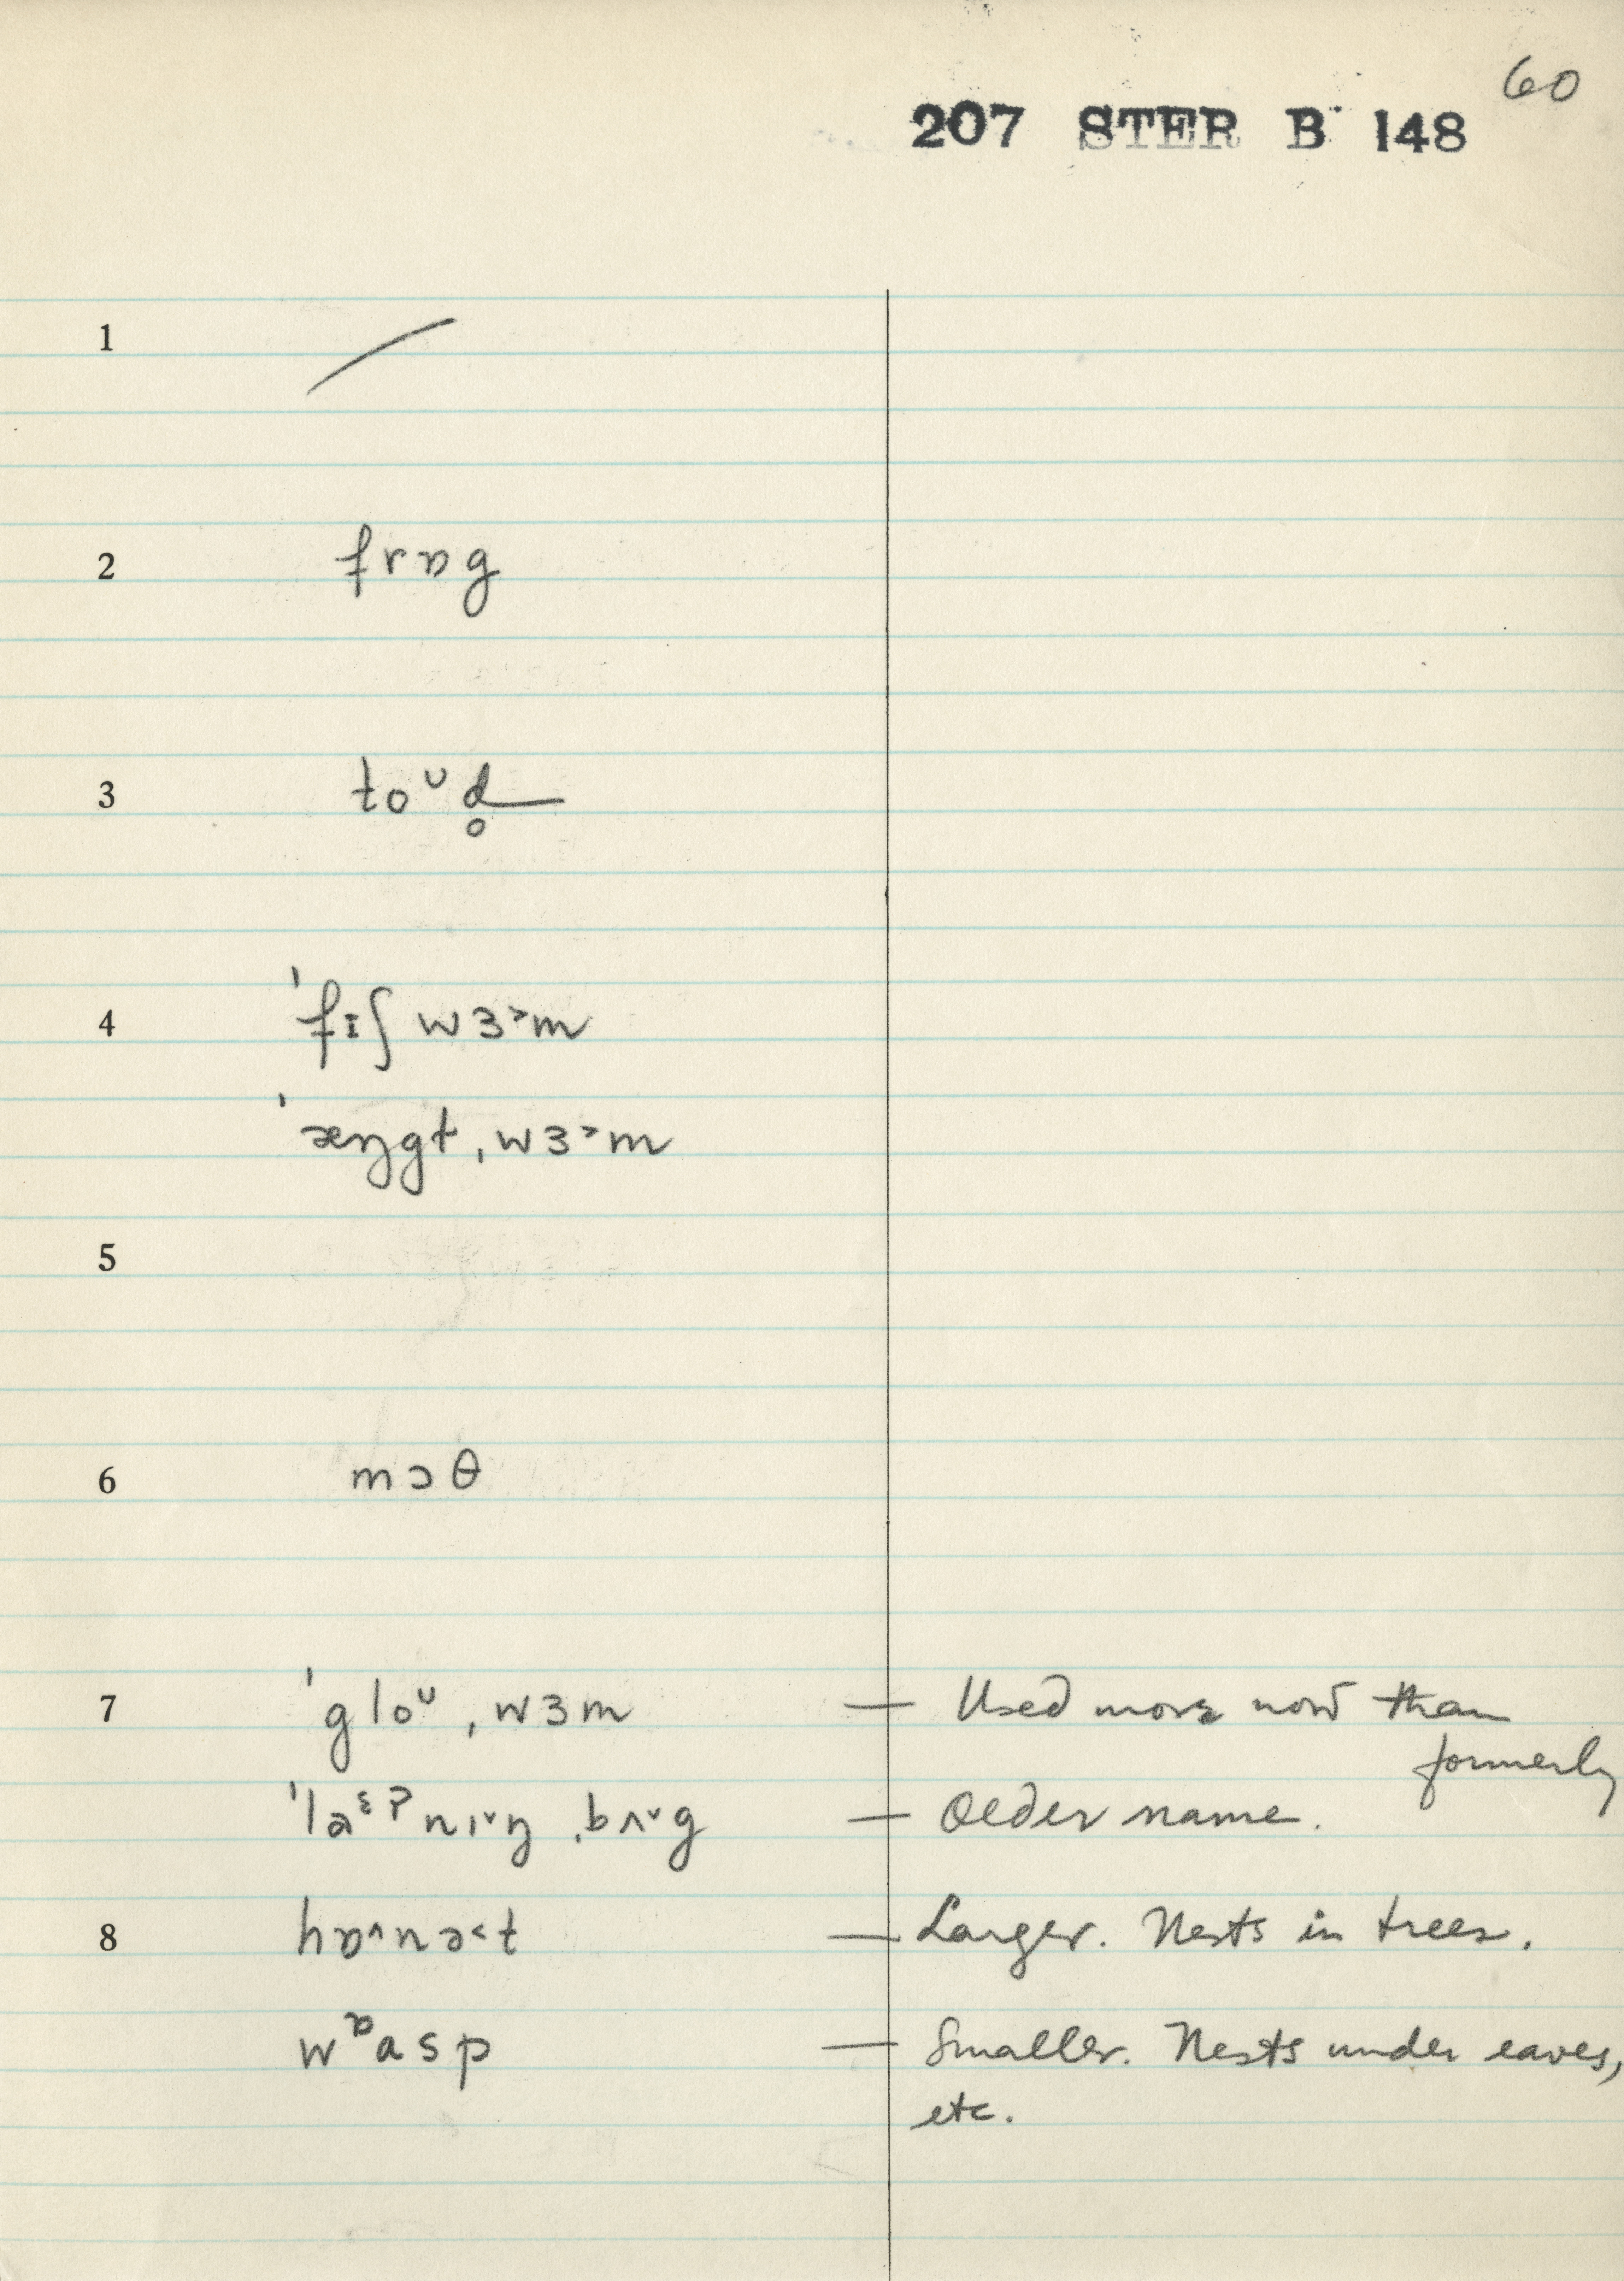 60
207 STER B 148
1 /
2 frɒg
3 toᵘd̥
4 ˈfɪʃ wɜ˃m
ˈæŋgɫ ˌwɜ˃m
5
6 mɔθ
7 ˈgloᵘ ˌwɜm — Used more now than formerly
nɪ˅ŋ ˌbʌ˅g — Older name.
8 hɒ^nə˂t — Larger. Nests in trees.
wᶛasp — Smaller. Nests under eaves,
etc.